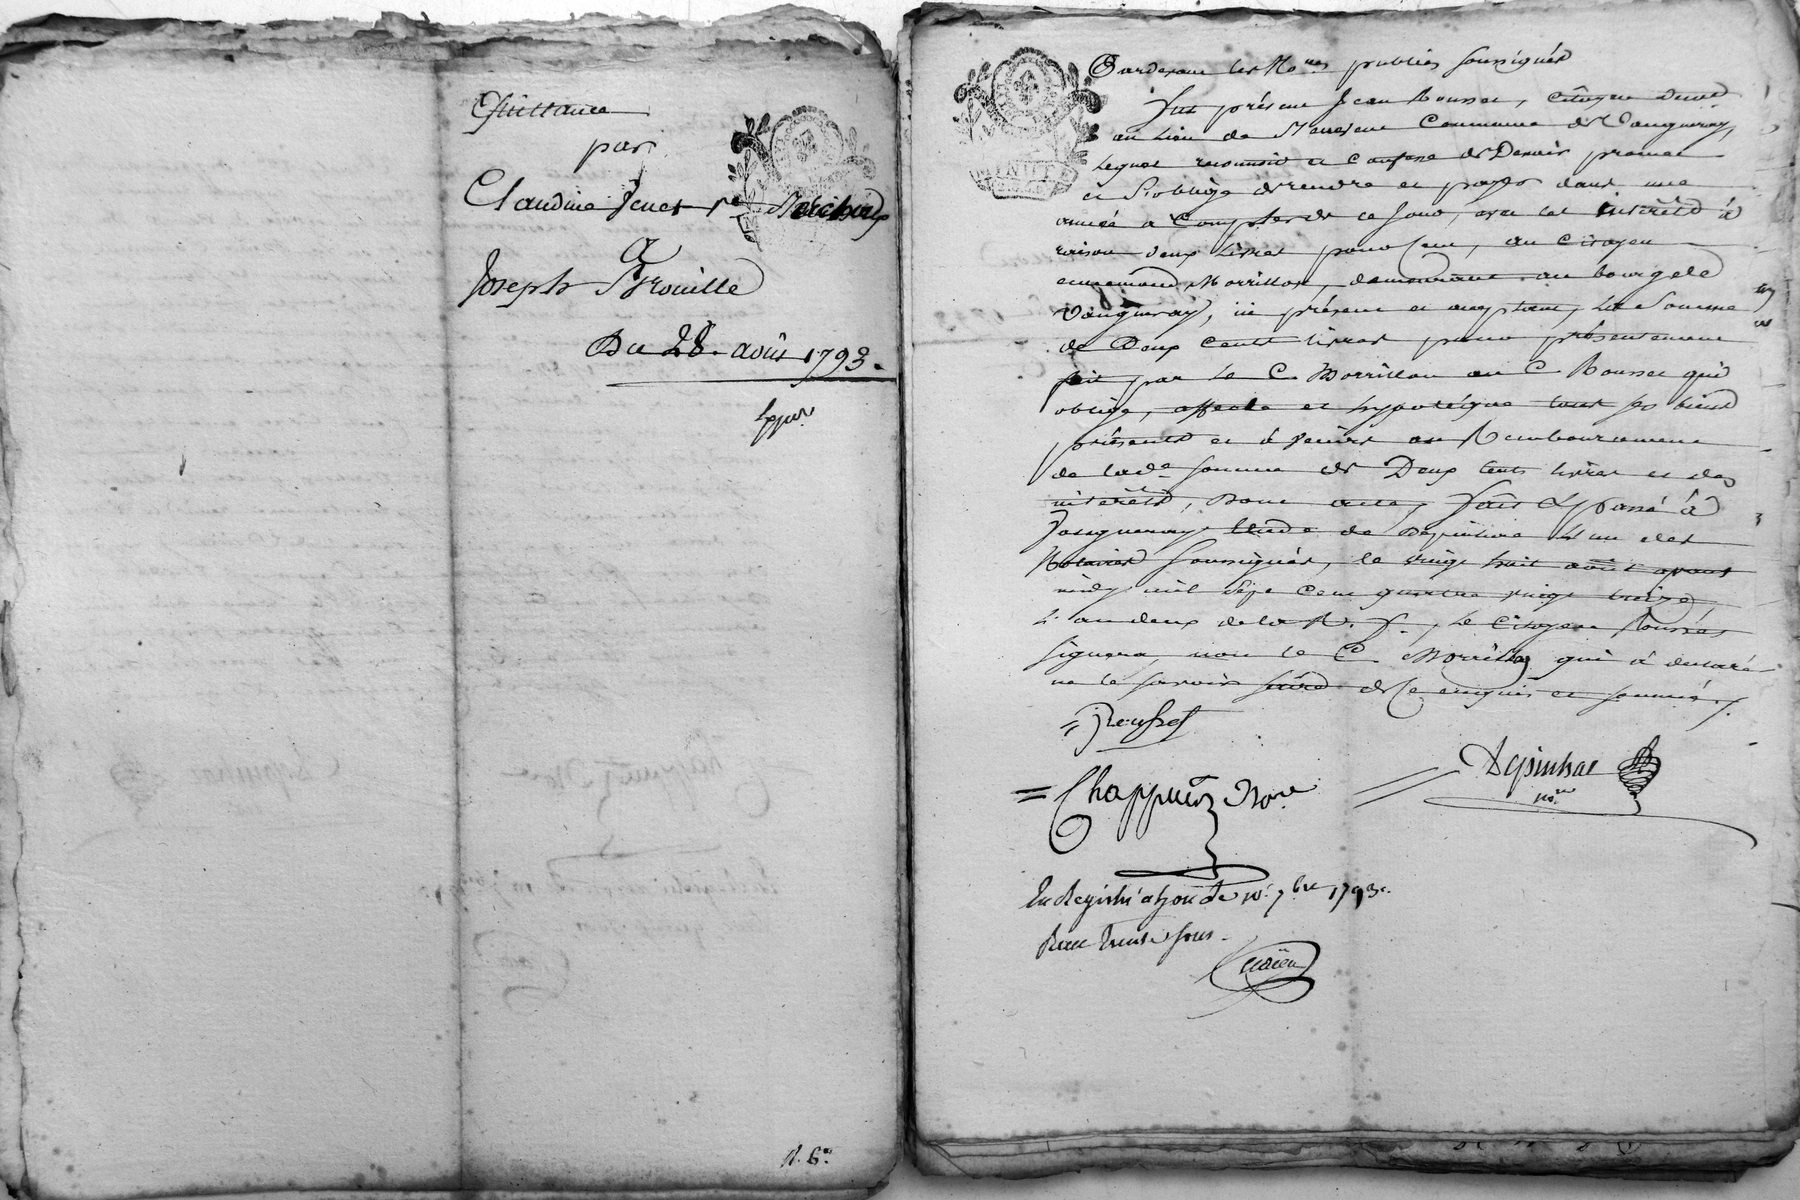 Quittance
par
Claudine Jenet Ve
a
Joseph Brouille
Du 28. août 1793.
Expé.
N. 6e.
Pardevant les Nores publics soussignés
Fut présent Jean Rousset, citoyen demt.
au lieu de Commune de Vaugneray,
Lequel reconnoit et confesse de Devoir promet
et S'oblige de rendre et payer dans une
année à Compter de ce jour, avec les intérêts à
raison deux livres pour cent, au Citoyen
ennemond Morrillon, demeurant au bourg de
Vaugneray, ici présent et acceptant, la Somme
de Deux Cents livres pour présentement
fait par le C. Morrillon au C. Rousset qui
oblige, affecte et hypotéque tous ses biens
présents et à venirs au Remboursement
de lade somme de Deux Cents livres et des
intérêts, Dont acte, fait et passé à
Vaugneray, étude de Depinhac L'un des
Notaires soussignés, le vingt huit août avant
midy mil sept Cent quatre vingt treize,
L'an deux de la R. f., le Citoyen Rousset
signera, non le C. Morrillon qui à déclaré
ne le savoir faire de ce enquis et sommé./.
= Rousset
= Chappuis Nore
Depinhac
nore
Enregistré le 10. 7bre 1793.
Reçu trente sous.